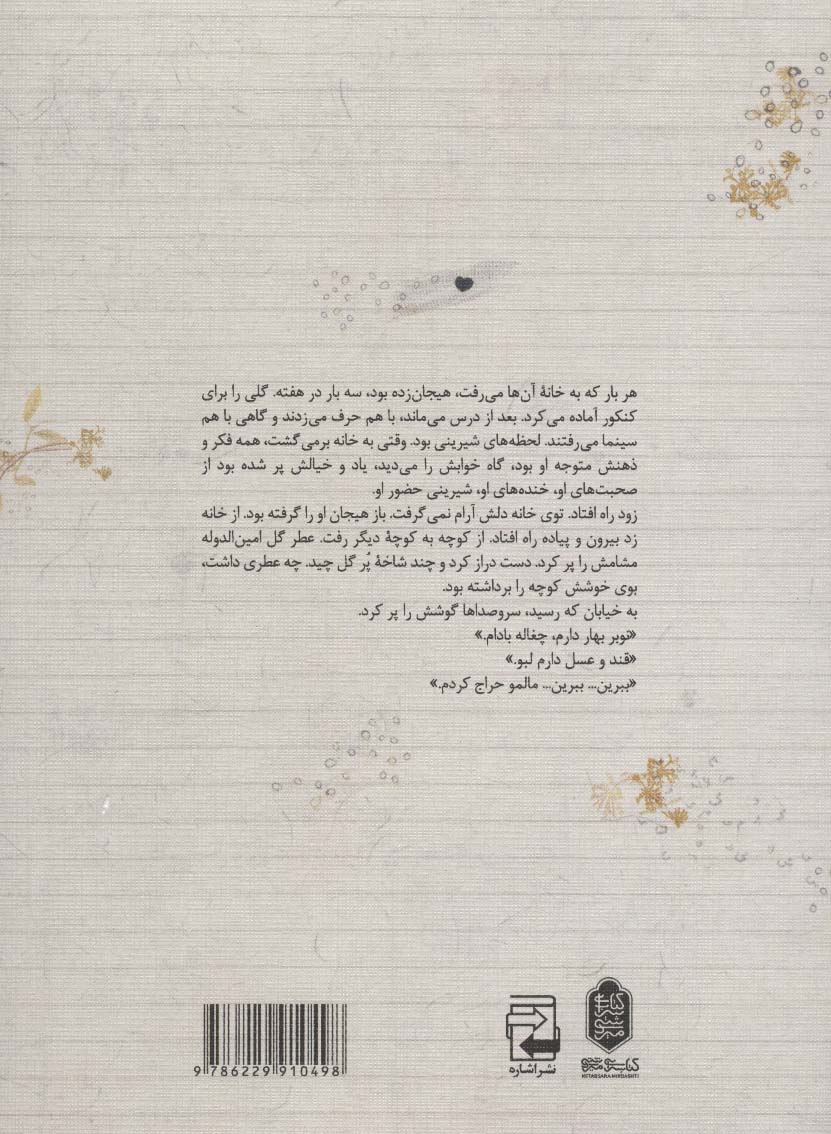 هر بار که به خانهٔ آن‌ها می‌رفت، هیجان‌زده بود، سه بار در هفته. گلی را برای
کنکور آماده می‌کرد. بعد از درس می‌ماند، با هم حرف می‌زدند و گاهی با هم
سینما می‌رفتند. لحظه‌های شیرینی بود. وقتی به خانه برمی‌گشت، همه فکر و
ذهنش متوجه او بود، گاه خوابش را می‌دید، یاد و خیالش پر شده بود از
صحبت‌های او، خنده‌های او، شیرینی حضور او.
زود راه افتاد. توی خانه دلش آرام نمی‌گرفت. باز هیجان او را گرفته بود. از خانه
زد بیرون و پیاده راه افتاد. از کوچه به کوچهٔ دیگر رفت. عطر گل امین‌الدوله
مشامش را پر کرد. دست دراز کرد و چند شاخهٔ پُر گل چید. چه عطری داشت،
بوی خوشش کوچه را برداشته بود.
به خیابان که رسید، سروصداها گوشش را پر کرد.
«نوبر بهار دارم، چغاله بادام.»
«قند و عسل دارم لبو.»
«ببرین... ببرین... مالمو حراج کردم.»
کتابسرای میردشتی
KETABSARA MIRDASHTI
نشر اشاره
9 786229 910498